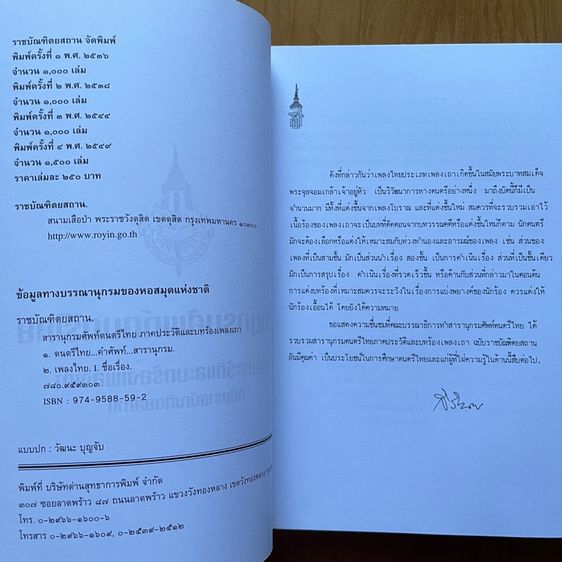 ราชบัณฑิตยสถาน จัดพิมพ์
พิมพ์ครั้งที่ ๑ พ.ศ. ๒๕๓๖
จำนวน ๑,๐๐๐ เล่ม
พิมพ์ครั้งที่ ๒ พ.ศ. ๒๕๓๘
จำนวน ๑,๐๐๐ เล่ม
พิมพ์ครั้งที่ ๓ พ.ศ. ๒๕๔๔
จำนวน ๑,๐๐๐ เล่ม
พิมพ์ครั้งที่ ๔ พ.ศ. ๒๕๔๙
จำนวน ๑,๕๐๐ เล่ม
ราคาเล่มละ ๒๕๐ บาท
ราชบัณฑิตยสถาน.
สนามเสือป่า พระราชวังดุสิต เขตดุสิต กรุงเทพมหานคร ๑๐๓๐๐
http://www.royin.go.th
ข้อมูลทางบรรณานุกรมของหอสมุดแห่งชาติ
ราชบัณฑิตยสถาน.
สารานุกรมศัพท์ดนตรีไทย ภาคประวัติและบทร้องเพลงเถา
๑. ดนตรีไทย--คำศัพท์--สารานุกรม.
๒. เพลงไทย. I. ชื่อเรื่อง.
๗๘๐.๙๕๙๓๐๓
ISBN : 974-9588-59-2
แบบปก : วัฒนะ บุญจับ
พิมพ์ที่ บริษัทด่านสุทธาการพิมพ์ จำกัด
๓๐๗ ซอยลาดพร้าว ๘๗ ถนนลาดพร้าว แขวงวังทองหลาง เขตวังทองหลาง
โทร. ๐-๒๙๖๖-๑๖๐๐-๖
โทรสาร ๐-๒๙๖๖-๑๖๐๙, ๐-๒๕๓๙-๒๕๑๒
ดังที่กล่าวกันว่าเพลงไทยประเภทเพลงเถาเกิดขึ้นในสมัยพระบาทสมเด็จ
พระจุลจอมเกล้าเจ้าอยู่หัว เป็นวิวัฒนาการทางดนตรีอย่างหนึ่ง มาถึงบัดนี้ก็มีเป็น
จำนวนมาก มีทั้งที่แต่งขึ้นจากเพลงโบราณ และที่แต่งขึ้นใหม่ สมควรที่จะรวบรวมเอาไว้
เนื้อร้องของเพลงเถาจะเป็นบทที่ตัดตอนจากบทวรรณคดีหรือแต่งขึ้นใหม่ก็ตาม นักดนตรี
มักจะต้องเลือกหรือแต่งให้เหมาะสมกับทวงทำนองและอารมณ์ของเพลง เช่น ส่วนของ
เพลงที่เป็นสามชั้น มักเป็นส่วนนำเรื่อง สองชั้น เป็นการดำเนินเรื่อง ส่วนที่เป็นชั้นเดียว
มักเป็นการสรุปเรื่อง ดำเนินเรื่องที่รวดเร็วขึ้น หรือค้านกับส่วนที่กล่าวมาในตอนต้น
การแต่งบทร้องที่เหมาะสมควรจะระวังในเรื่องการแบ่งพยางค์ของนักร้อง ควรแต่งให้
นักร้องเอื้อนได้ โดยยังได้ความหมาย
ขอแสดงความชื่นชมที่คณะบรรณาธิการทำสารานุกรมศัพท์ดนตรีไทย ได้
รวบรวมสารานุกรมดนตรีไทยภาคประวัติและบทร้องเพลงเถา ฉบับราชบัณฑิตยสถาน
อันมีคุณค่า เป็นประโยชน์ในการศึกษาดนตรีไทยและแก่ผู้ที่ใฝ่ความรู้ในด้านนี้สืบต่อไป.